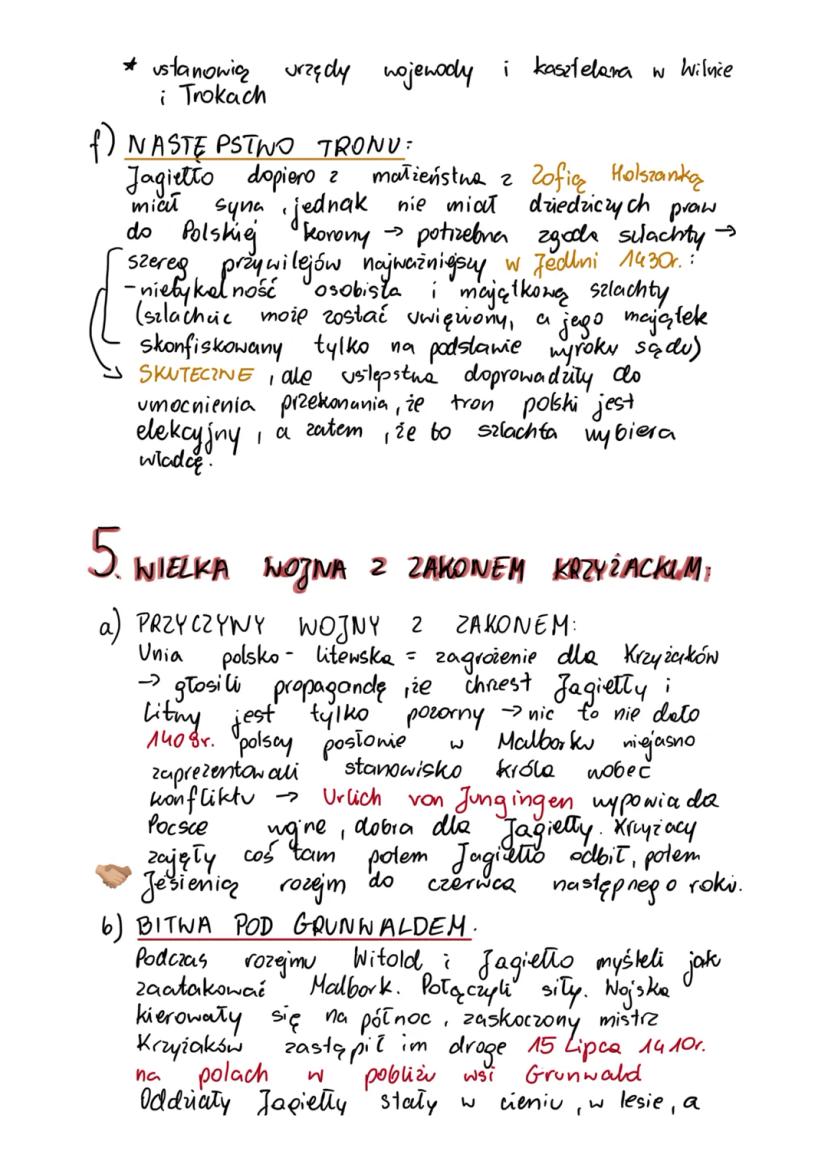 * ustanowią urzędy wojewody i kasztelana w Wilnie
i Trokach
f) NASTĘPSTWO TRONU:
Jagiełło dopiero z małżeństwa z Zofią Holszanką
miał syna, jednak nie miał dziedziczych praw
do Polskiej korony → potrzebna zgoda szlachty →
szereg przywilejów najważniejszy w Jedlni 1430r.:
- nietykalność osobista i majątkową szlachty
(szlachcic może zostać uwięziony, a jego majątek
skonfiskowany tylko na podstawie wyroku sądu)
SKUTECZNE, ale ustępstwa doprowadziły do
umocnienia przekonania, że tron polski jest
elekcyjny, a zatem, że to szlachta wybiera
władcę.
5. WIELKA WOJNA Z ZAKONEM KRZYŻACKIM:
a) PRZYCZYNY WOJNY Z ZAKONEM:
Unia polsko - litewska = zagrożenie dla Krzyżaków
→ głosili propagandę, że chrzest Jagiełły i
Litwy jest tylko pozorny → nic to nie dało
1409r. polscy posłowie w Malborku niejasno
zaprezentowali stanowisko króla wobec
konfliktu → Urlich von Jungingen wypowiada
Pocsce wojnę, dobra dla Jagiełły. Krzyżacy
zajęły coś tam potem Jagiełło odbił, potem
Jesienią rozejm do czerwca następnego roku.
b) BITWA POD GRUNWALDEM.
Podczas rozejmu Witold i Jagiełło myśleli jak
zaatakować Malbork. Połączyli siły. Wojska
kierowały się na północ, zaskoczony mistrz
Krzyżaków zastąpił im drogę 15 Lipca 1410r.
na polach w pobliżu wsi Grunwald
Oddziały Jagiełły stały w cieniu, w lesie, a